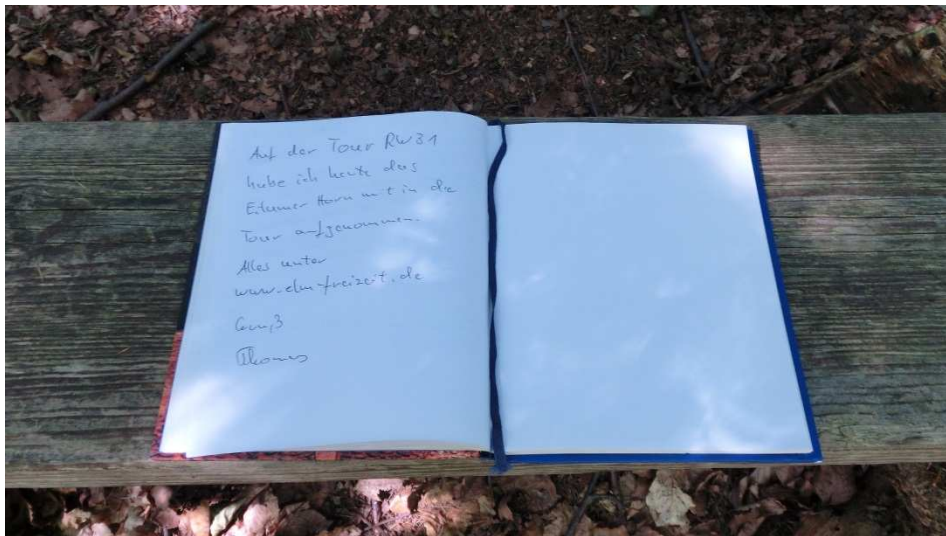 Auf der Tour RW31
habe ich heute das
Eitumer Horn mit in die
Tour aufgenommen.
Alles unter
www.elm-freizeit.de
Gruß
Thomas